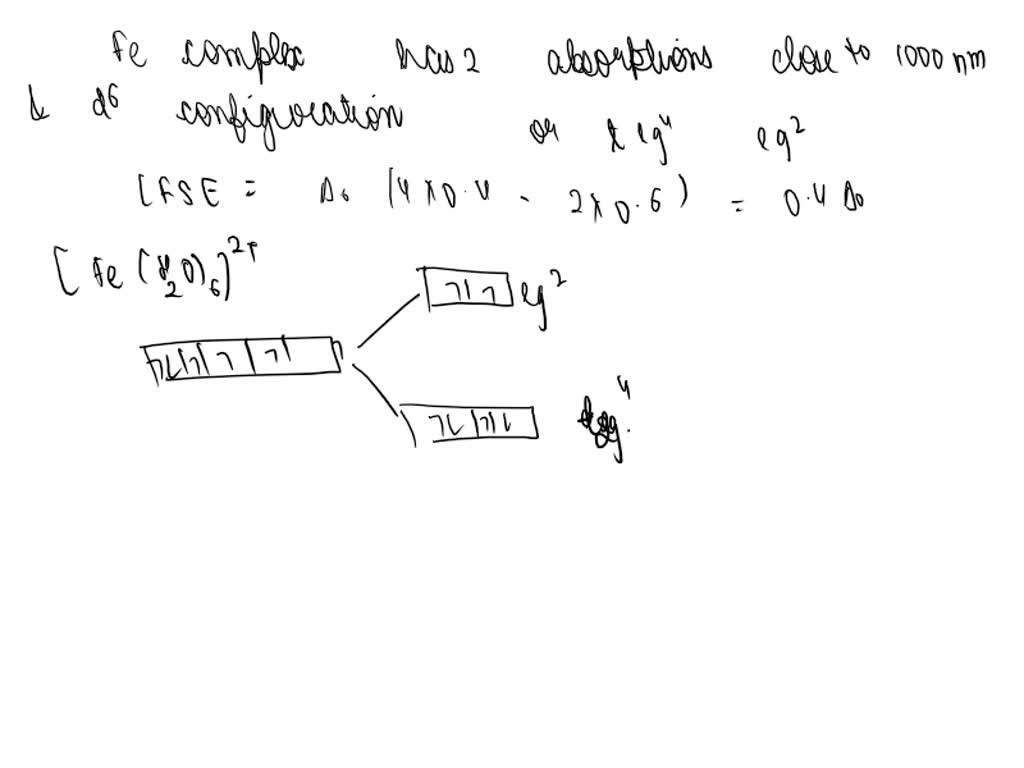 Fe complex has 2 absorptions close to 1000 nm
& d⁶ configuration or t eg⁴ eg²
CFSE = Δo (4x0.4 - 2x0.6) = 0.4 Δo
[Fe(H₂O)₆]²⁺
eg²
4